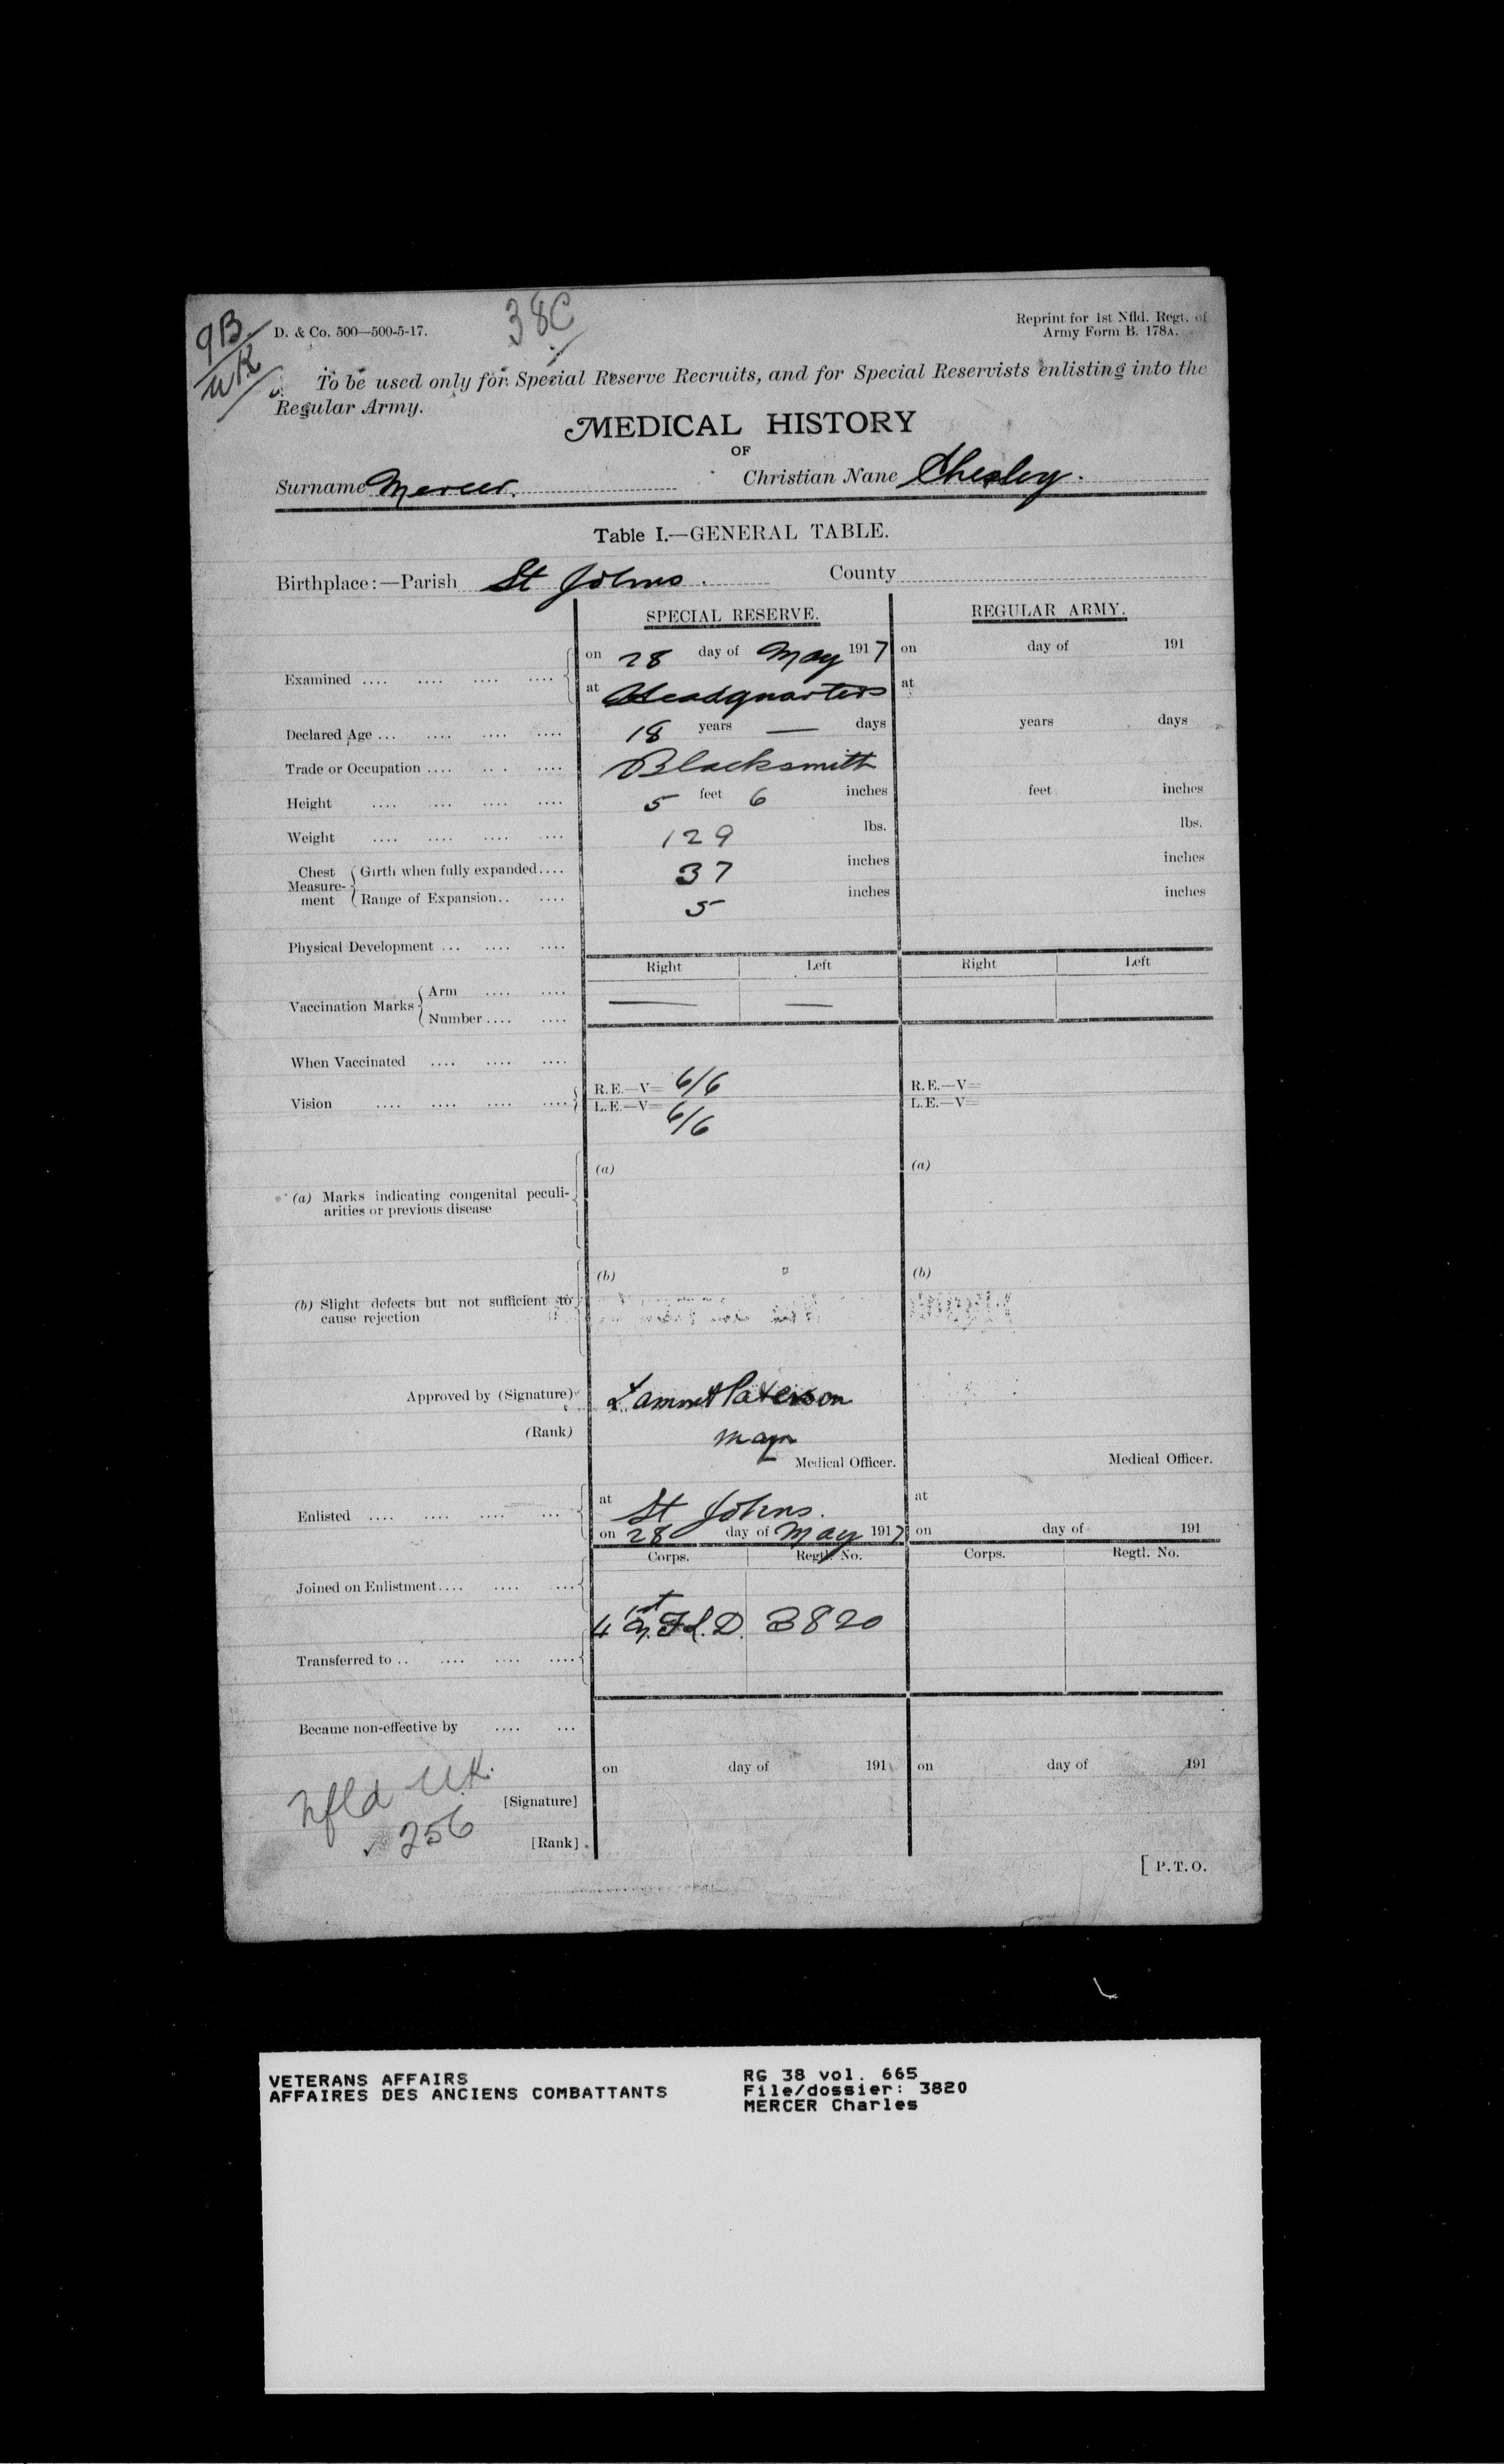 9B
WK
D. & Co. 500—500-5-17.
38C
Reprint for 1st Nfld. Regt. of
Army Form B. 178A.
To be used only for Special Reserve Recruits, and for Special Reservists enlisting into the
Regular Army.
MEDICAL HISTORY
OF
Surname Mercer. Christian Nane Chesley.
Table I.—GENERAL TABLE.
Birthplace:—Parish St Johns. County
SPECIAL RESERVE. REGULAR ARMY.
Examined .... .... .... .... on 28 day of May 1917 on day of 191
at Headquarters at
Declared Age ... .... .... .... 18 years — days years days
Trade or Occupation .... .... .... Blacksmith
Height .... .... .... .... 5 feet 6 inches feet inches
Weight .... .... .... .... 129 lbs. lbs.
Chest Measure-ment Girth when fully expanded.... 37 inches inches
Range of Expansion.. .... 5 inches inches
Physical Development ... .... ....
Right Left Right Left
Vaccination Marks Arm .... .... — —
Number .... ....
When Vaccinated .... .... ....
Vision .... .... .... .... R.E.—V= 6/6 R.E.—V=
L.E.—V= 6/6 L.E.—V=
(a) (a)
(a) Marks indicating congenital peculi-
arities or previous disease
(b) (b)
(b) Slight defects but not sufficient to
cause rejection
Approved by (Signature) Lamont Paterson
(Rank) Major
Medical Officer. Medical Officer.
Enlisted .... .... .... ... at St Johns. at
on 28 day of May 1917 on day of 191
Corps. Regtl. No. Corps. Regtl. No.
Joined on Enlistment.... .... ...
1st Nfld. 3820
Transferred to .. .... .... ....
Became non-effective by .... ...
on day of 191 on day of 191
Nfld UK.
[Signature]
256
[Rank]
[P.T.O.
VETERANS AFFAIRS
AFFAIRES DES ANCIENS COMBATTANTS
RG 38 vol. 665
File/dossier: 3820
MERCER Charles